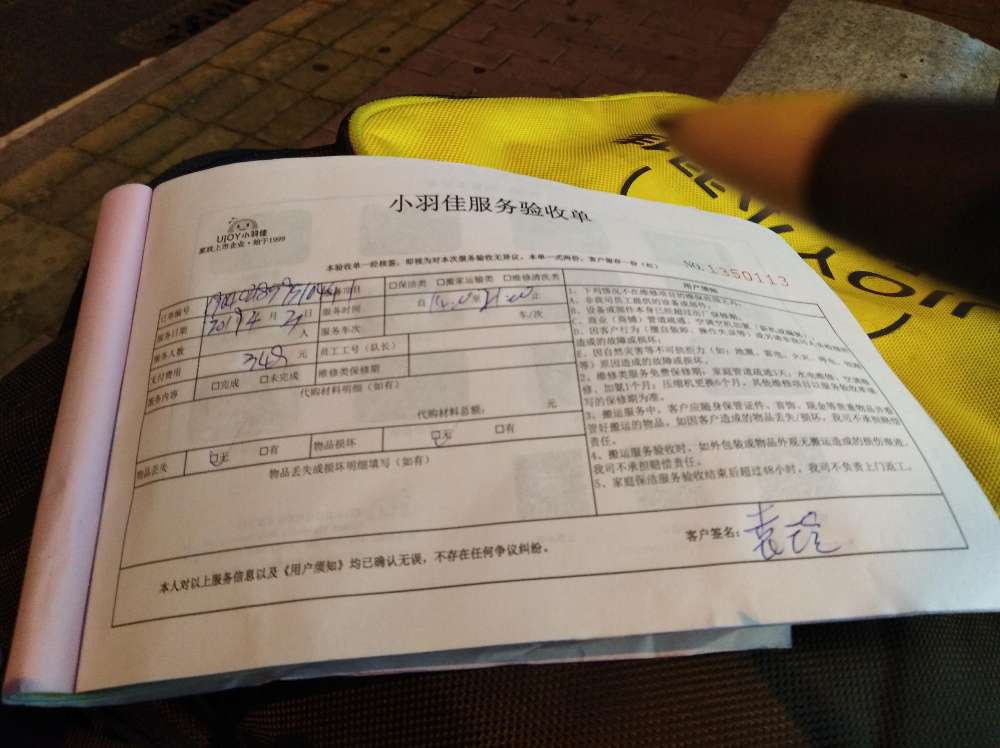 小羽佳服务验收单
UJOY小羽佳
家政上市企业·始于1999
本验收单一经核签,即视为对本次服务验收无异议,本单一式两份,客户留存一份(红)
NO.1350113
订单编号
服务项目 □保洁类 □搬家运输类 □维修清洗类
服务日期 2019年4月 日 服务时间 自
服务人数 人 服务车次 车/次
支付费用 348元 员工工号(队长)
服务内容 □完成 □未完成 维修类保修期
代购材料明细(如有)
代购材料总额: 元
物品丢失 □无 □有 物品损坏 □无 □有
物品丢失或损坏明细填写(如有)
用户须知
1、下列情况不在维修项目的维保范围之内:
A、非我司员工提供的设备或部件。
B、设备或部件本身已经超过出厂保修期。
C、商业(商铺)管道疏通、空调空机加氟(新机或漏氟)
D、因客户行为(擅自装卸、操作失误等)或
造成的故障或损坏。
E、因自然灾害等不可抗拒力(如:地震、雷电、火灾、
等)原因造成的故障或损坏。
2、维修类服务免费保修期:家庭管道疏通3天;水电维修、空调维
修、加氟1个月;压缩机更换6个月,其他维修项目以服务验收单填
写的保修期为准。
3、搬运服务中,客户应随身保管证件、首饰、现金等贵重物品并看
管好搬运的物品,如因客户造成的物品丢失/损坏,我司不承担赔偿
责任。
4、搬运服务验收时,如外包装或物品外观无搬运造成的损伤痕迹,
我司不承担赔偿责任。
5、家庭保洁服务验收结束后超过48小时,我司不负责上门返工。
本人对以上服务信息以及《用户须知》均已确认无误,不存在任何争议纠纷。
客户签名: